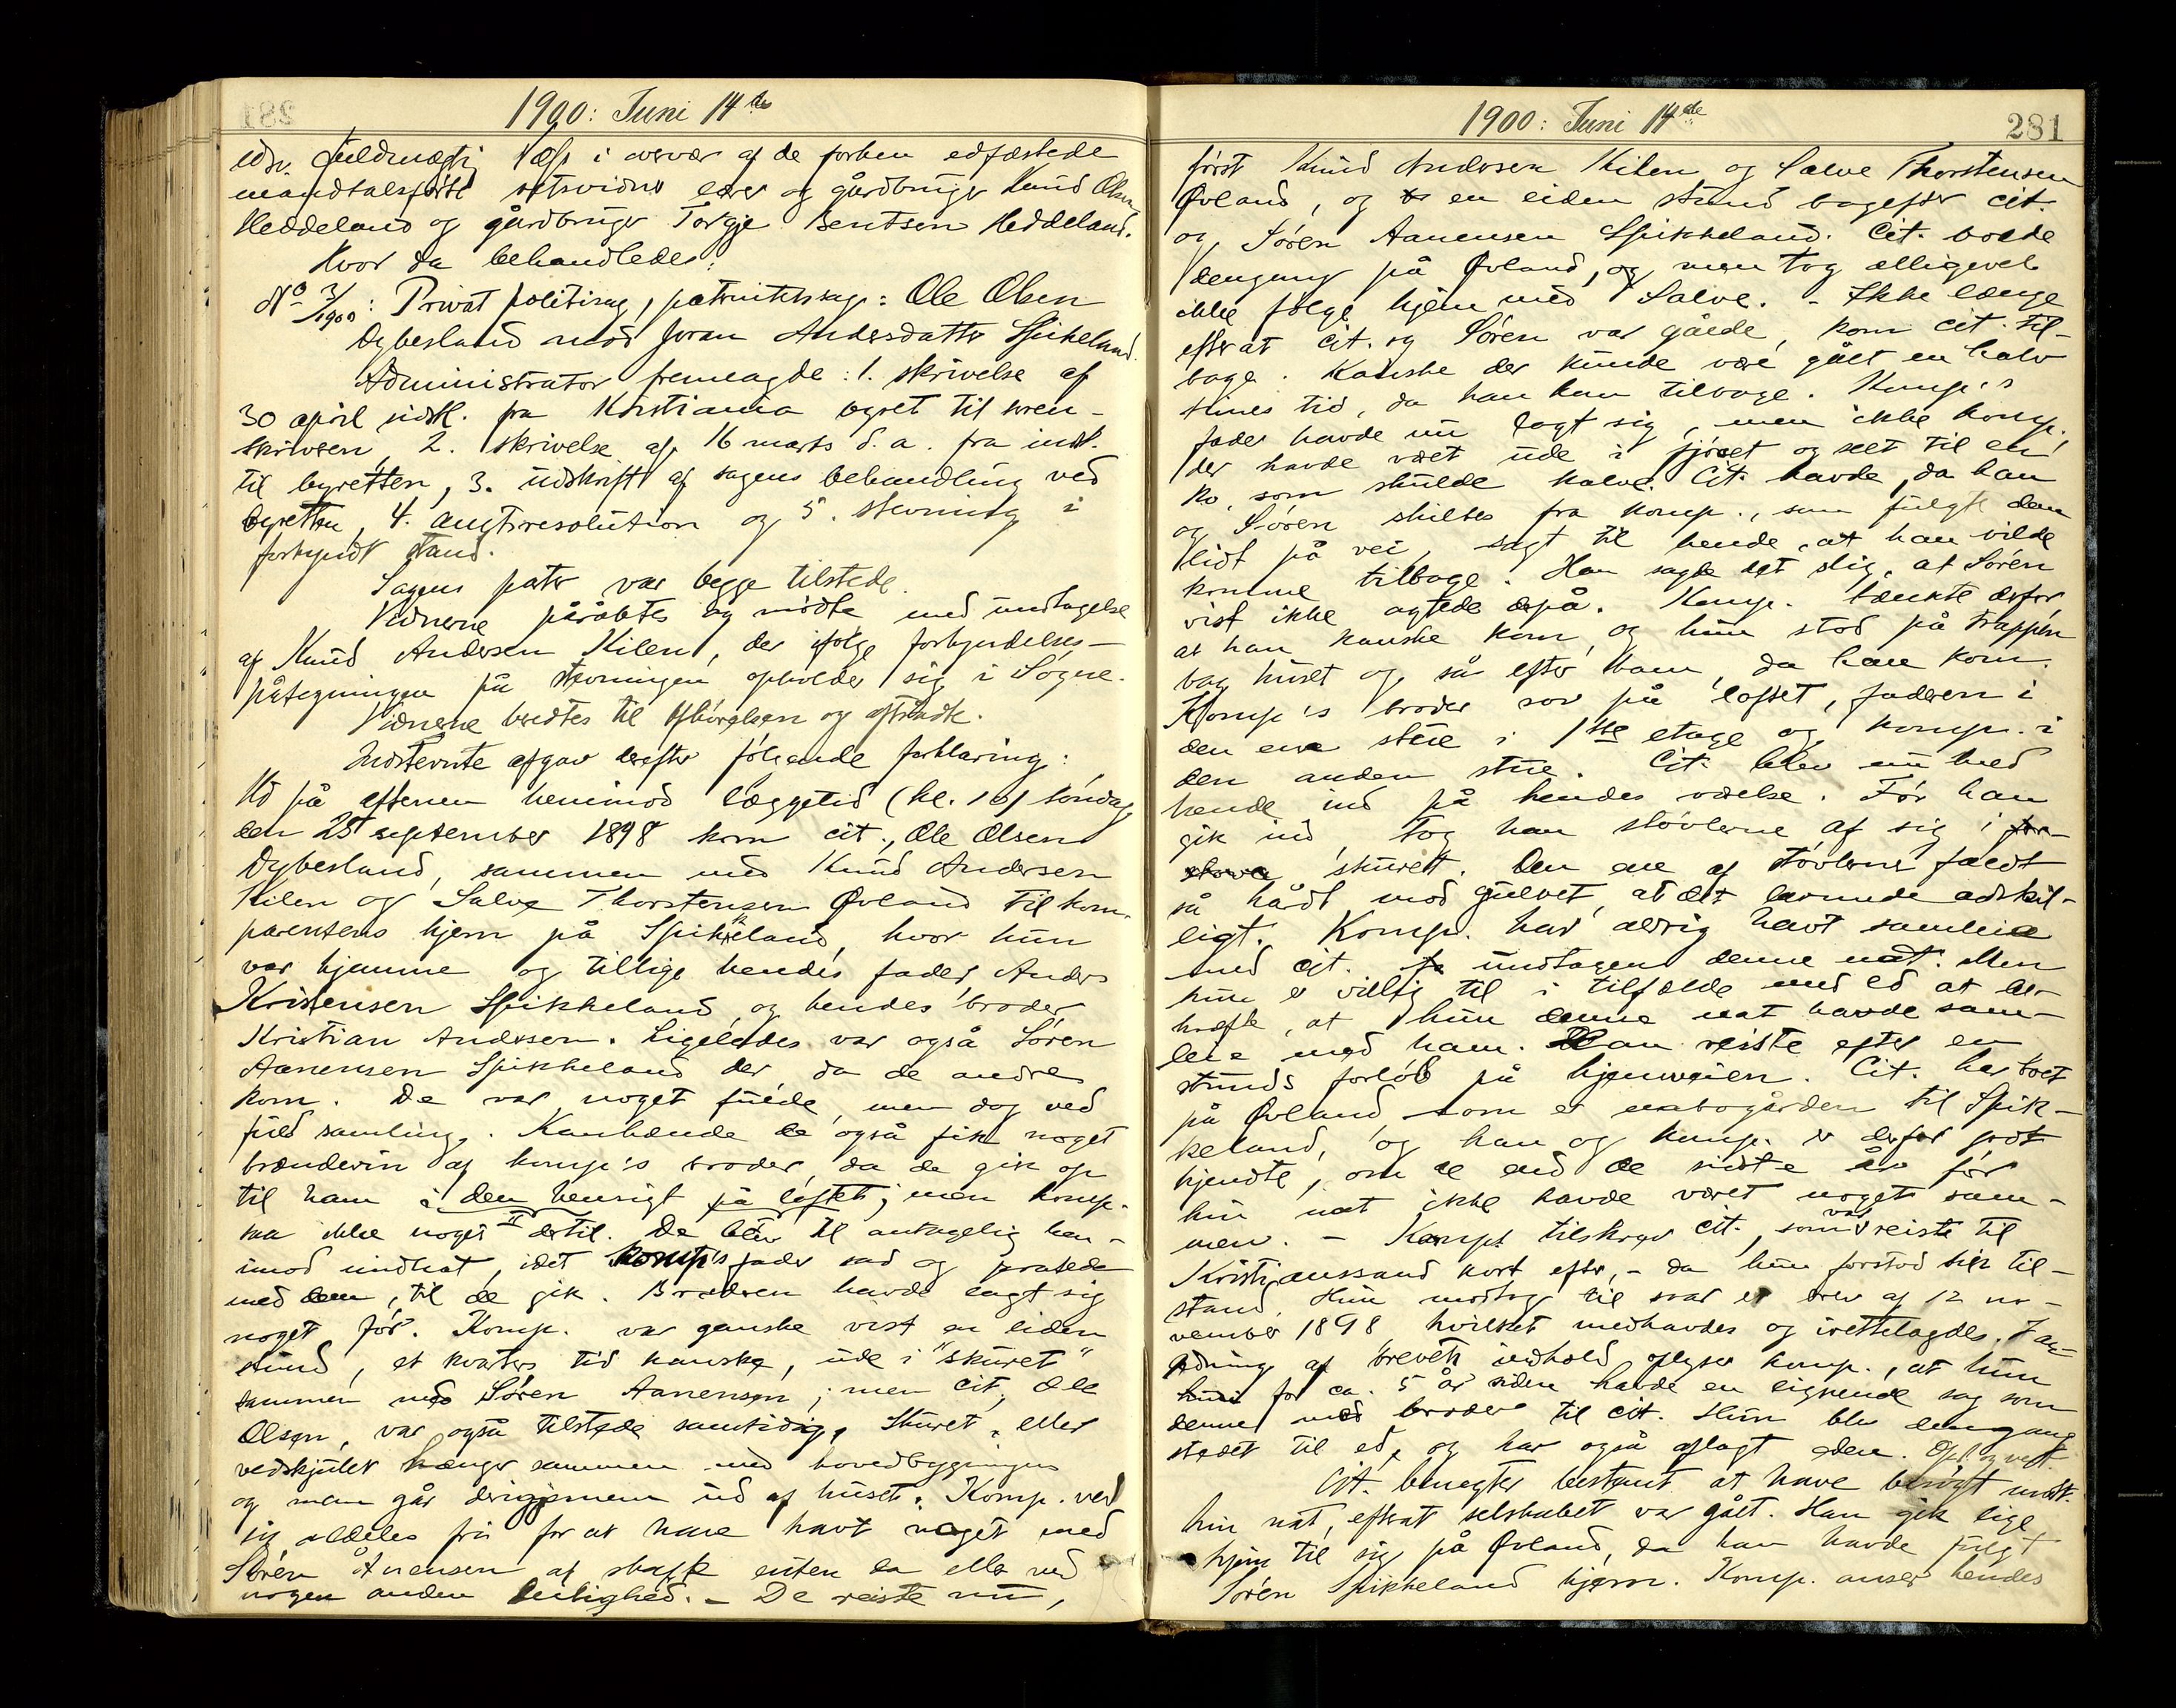 1900: Juni 14de
edsv. fuldmægtig i overvær af de forhen edfæstede
mandtalsførte retsvidner lærer og gårdbruger Knud Olsen
Heddeland og gårdbruger Torgje Bentsen Heddeland.
Hvor da behandledes:
No 3/1900: Privat politisag, paternitetssag: Ole Olsen
Dybesland mod Joran Andersdatter Spikeland.
Administrator fremlagde: 1. skrivelse af
30 april sidstl. fra Kristiania byret til soren-
skriveren, 2. skrivelse af 16 marts d. a. fra indst.
til byretten, 3. udskrift af sagens behandling ved
byretten, 4. amtsresolution og 5. stevning i
forkyndt stand.
Sagens parter var begge tilstede.
Vidnerne påråbtes og mødte med undtagelse
af Knud Andersen Kilen, der ifølge forkyndelses-
påtegningen på stevningen opholder sig i Søgne.
Vidnerne beredtes til afhørelsen og aftrådte.
Indstevnte afgav derefter følgende forklaring:
Ud på aftenen henimod læggetid (kl. 10) søndag
den 25 september 1898 kom cit., Ole Olsen
Dybesland, sammen med Knud Andersen
Kilen og Salve Thorstensen Øvland til kom-
parentens hjem på Spikkeland, hvor hun
var hjemme og tillige hendes fader, Anders
Kristensen Spikkeland, og hendes broder,
Kristian Andersen. Ligeledes var også Søren
Aanensen Spikkeland der, da de andre
kom. De var noget fulde, men dog ved
fuld samling. Kanhænde de også fik noget
brændevin af komp's broder, da de gik op
til ham i den hensigt på loftet; men komp.
sa ikke noget dertil. De blev til antagelig hen-
imod midnat, idet komp's fader sad og pratede
med dem, til de gik. Broderen havde lagt sig
noget før. Komp. var ganske vist en liden
stund, et kvarters tid kanske, ude i "skuret"
sammen med Søren Aanensen; men cit., Ole
Olsen, var også tilstede samtidig. Skuret, eller
vedskjulet hænger sammen med hovedbygningen
og man går derigjennem ud af huset. Komp. ved
sig aldeles fri for at have havt noget med
Søren Ånensen at skaffe enten da eller ved
nogen anden leilighed. - De reiste nu,
1900: Juni 14de
281
først Knud Andersen Kilen og Salve Thorstensen
Øvland, og en liden stund bagefter cit.
og Søren Aanensen Spikkeland. Cit. boede
dengang på Øvland, og men tog alligevel
ikke følge hjem med Salve. - Ikke længe
efter at cit. og Søren var gåede, kom cit. til-
bage. Kanske der kunde være gået en halv
times tid, da han kom tilbage. Komp.'s
fader havde nu lagt sig, men ikke komp.,
der havde været ude i fjøset og seet til en
ko, som skulde kalve. Cit. havde, da han
og Søren skiltes fra komp., som fulgte dem
lidt på vei, sagt til hende, at han vilde
komme tilbage. Han sagde det slig, at Søren
vist ikke agtede derpå. Komp. tænkte derfor,
at han kanske kom, og hun stod på trappen
bag huset og så efter ham, da han kom.
Komp's broder sov på loftet, faderen i
den ene stue i 1ste etage og komp. i
den anden stue. Cit. blev nu med
hende ind på hendes værelse. Før han
gik ind, tog han støvlerne af sig i
skuret. Den ene af støvlerne faldt
så hårdt mod gulvet, at det larmede adskil-
ligt. Komp. har aldrig havt samleie
med cit. undtagen denne nat. Men
hun er villig til i tilfælde med ed at be-
kræfte, at hun denne nat havde sam-
leie med ham. Han reiste efter en
stunds forløb på hjemveien. Cit. har boet
på Øvland som er nabogården til Spik-
keland, og han og komp. er derfor godt
kjendte, om de end de sidste år før
hin nat ikke havde været noget sam-
men. - Komp. tilskrev cit., som var reist til
Kristianssand kort efter, - da hun forstod sin til-
stand. Hun modtog til svar et brev af 12 no-
vember 1898 hvilket medhavdes og irettelagdes. I an-
ledning af brevets indhold oplyser komp., at hun
for ca. 5 år siden havde en lignende sag som
denne med broder til cit. Hun blev dengang
stedet til ed, og har også aflagt eden. Opl. og vedt.
Cit. benegter bestemt at have besøgt indst.
hin nat, efterat selskabet var gået. Han gik lige
hjem til sig på Øvland, da han havde fulgt
Søren Spikkeland hjem. Komp. anser hendes